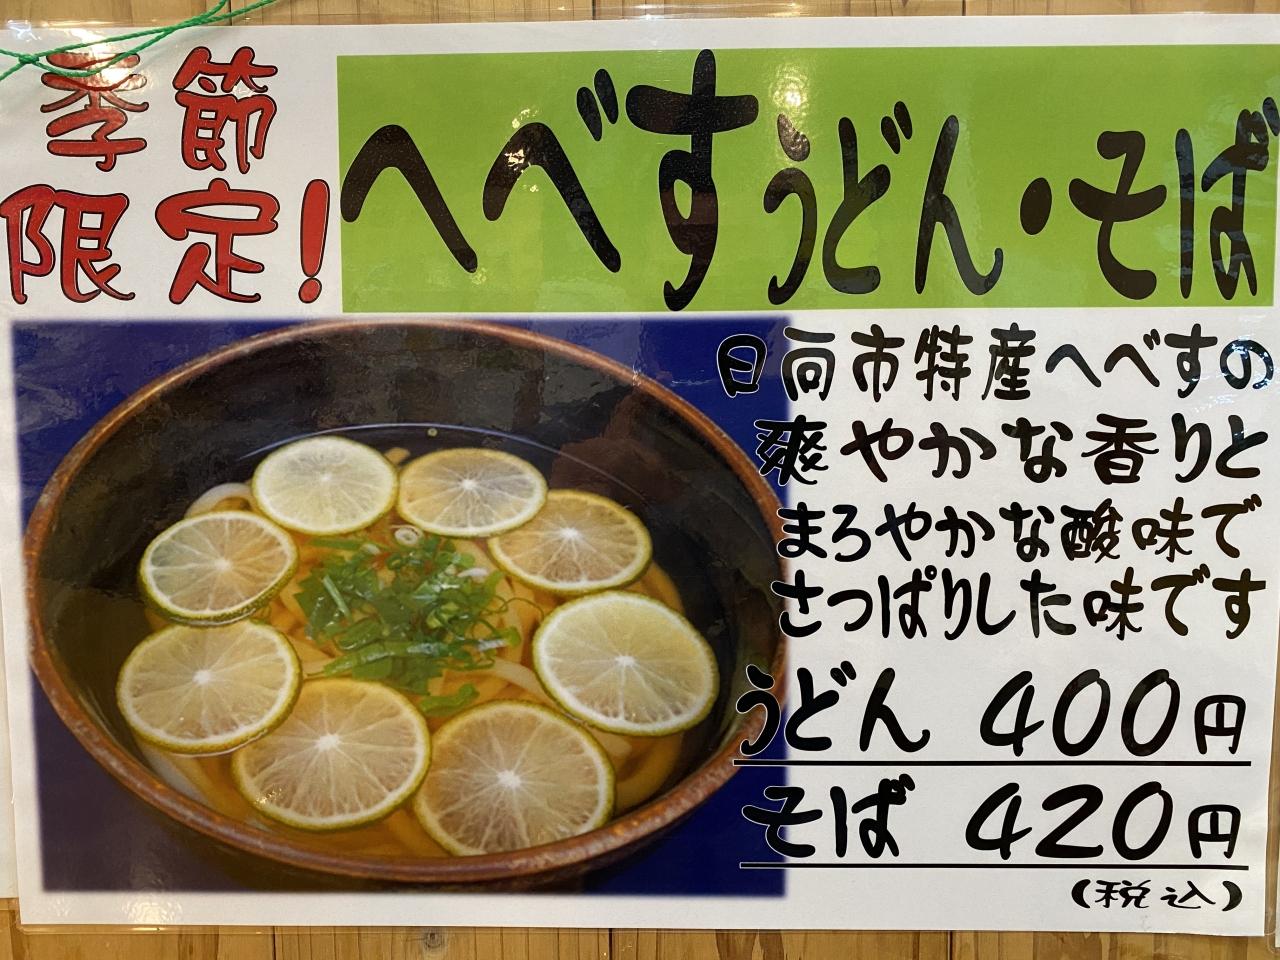 季節
限定!
へべすうどん・そば
日向市特産へべすの
爽やかな香りと
まろやかな酸味で
さっぱりした味です
うどん 400円
そば 420円
(税込)